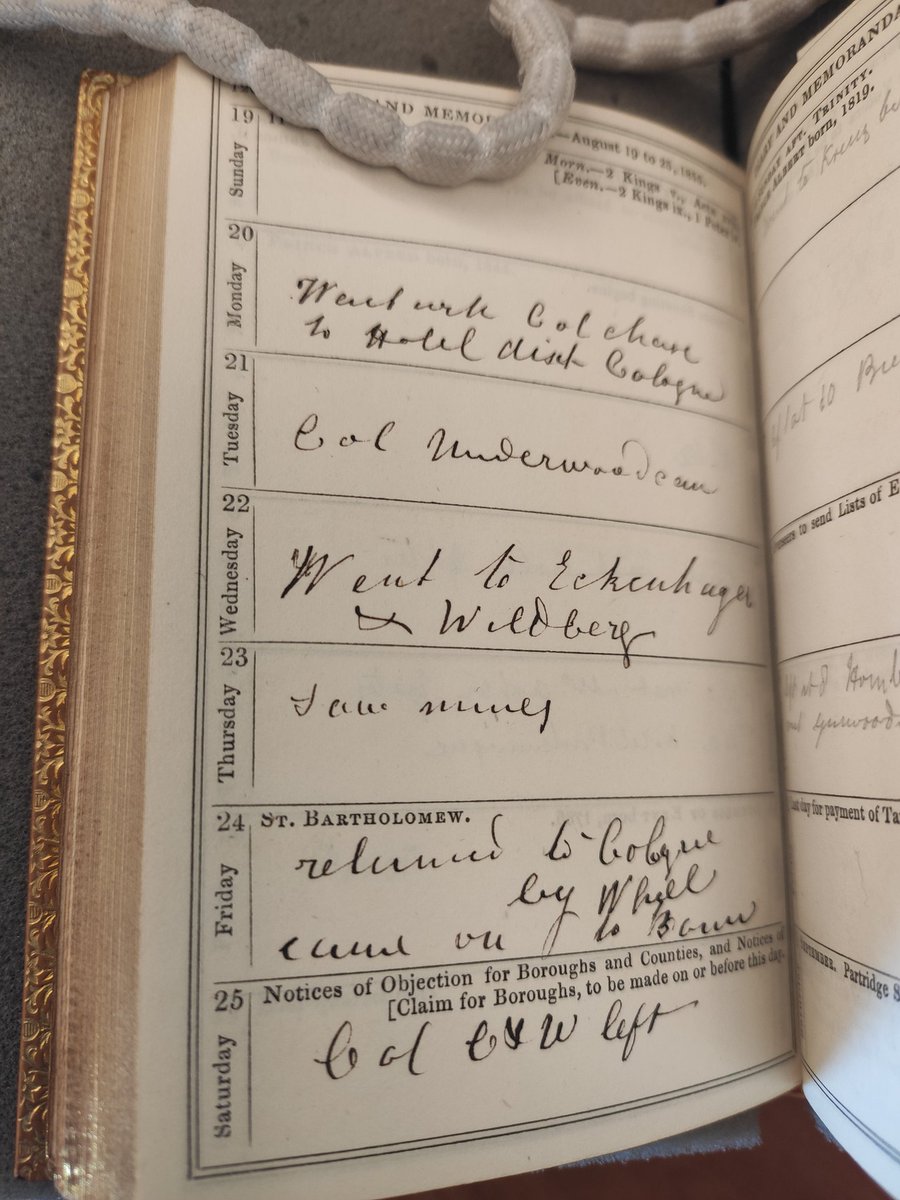 AND MEMOR
—August 19 to 25, 1855.
19
Sunday
Morn.—2 Kings v., Acts
[Even.—2 Kings ix., 1 Peter
20
Monday
Went with Col Chase
to Hotel disch Cologne
21
Tuesday
Col Underwood came
22
Wednesday
Went to Eckenhagen
& Wildberg
23
Thursday
Saw mines
24 ST. BARTHOLOMEW.
Friday
returned to Cologne
by
came on to Bonn
25 Notices of Objection for Boroughs and Counties, and Notices of
[Claim for Boroughs, to be made on or before this day.
Saturday
Col C & W left
AND MEMORANDA
SUNDAY AFT. TRINITY.
ALBERT born, 1819.
to send Lists of E
last day for payment of Ta
SEPTEMBER. Partridge S